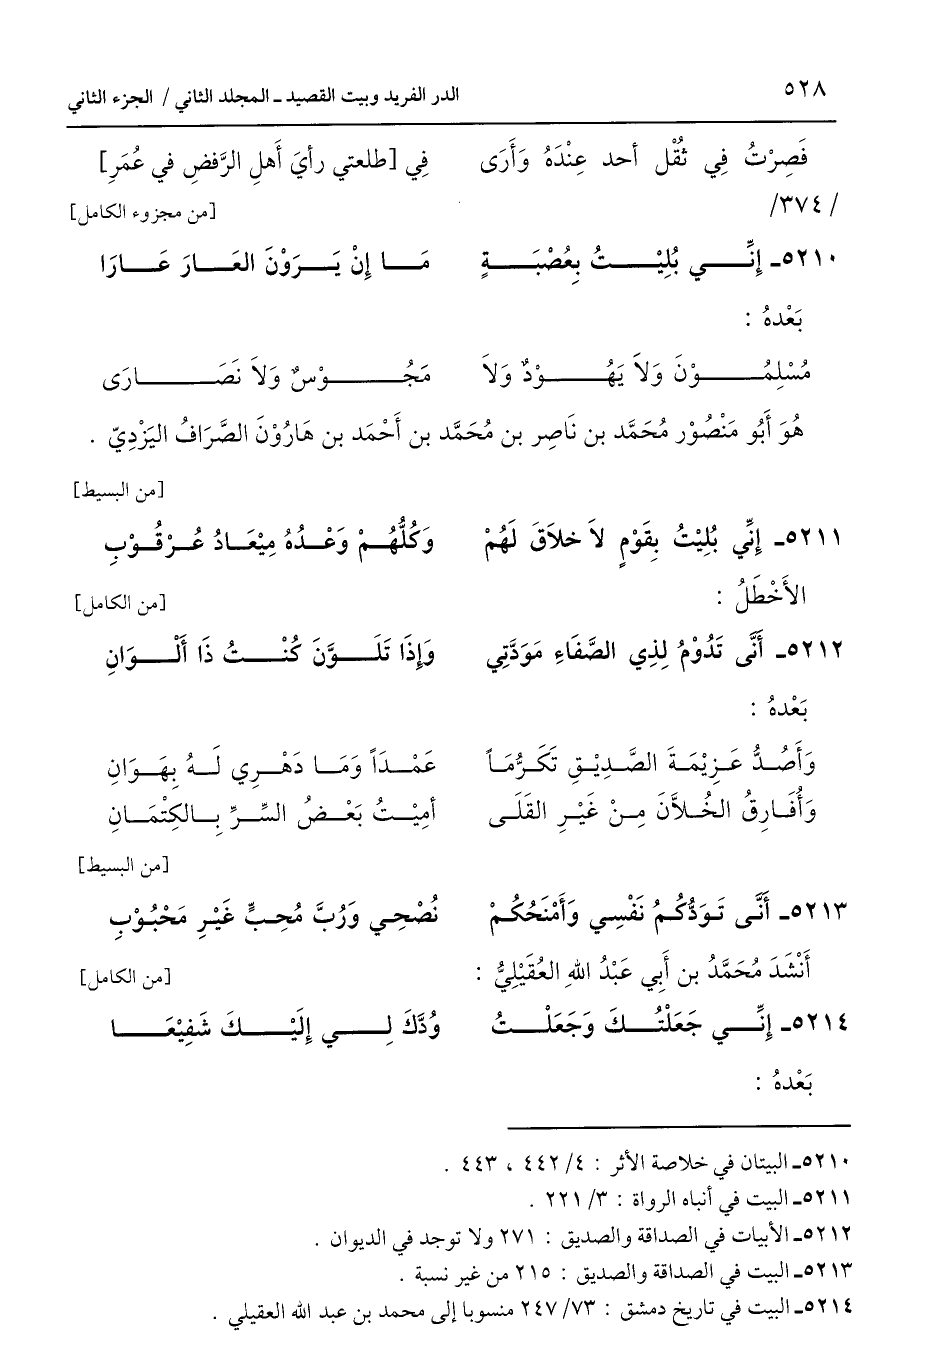 ٥٢٨ الدر الفريد وبيت القصيد ـ المجلد الثاني / الجزء الثاني
فَصِرْتُ فِي ثُقْل أحد عِنْدَهُ وَأَرَى فِي [طلعتي رأيَ أَهلِ الرَّفضِ في عُمَرِ]
/٣٧٤/ [من مجزوء الكامل]
٥٢١٠ـ إِنِّــي بُلِيْــتُ بِعُصْبَــةٍ مَــا إِنْ يَــرَوْنَ العَــارَ عَــارَا
بَعْدهُ :
مُسْلِمُــوْنَ وَلاَ يَهُــوْدٌ وَلاَ مَجُــوْسٌ وَلاَ نَصَــارَى
هُوَ أَبُو مَنْصُوْر مُحَمَّد بن نَاصِر بن مُحَمَّد بن أَحْمَد بن هَارُوْنَ الصَّرَافُ اليَزْدِيّ .
[من البسيط]
٥٢١١ـ إِنِّي بُلِيْتُ بِقَوْمٍ لاَ خلاَقَ لَهُمْ وَكُلُّهُـمْ وَعْـدُهُ مِيْعَـادُ عُـرْقُـوْبِ
الأَخْطَلُ : [من الكامل]
٥٢١٢ـ أَنَّى تَدُوْمُ لِذِي الصَّفَاءِ مَوَدَّتِي وَإِذَا تَلَــوَّنَ كُنْــتُ ذَا أَلْــوَانِ
بَعْدهُ :
وَأَصُـدُّ عَـزِيْمَـةَ الصَّـدِيْـقِ تَكَـرُّمَاً عَمْـدَاً وَمَـا دَهْـرِي لَـهُ بِهَـوَانِ
وَأُفَـارِقُ الخُـلاَّنَ مِـنْ غَيْـرِ القَلَـى أمِيْـتُ بَعْـضُ السِّـرِّ بِـالكِتْمَـانِ
[من البسيط]
٥٢١٣ـ أَنَّى تَـوَدُّكُـمُ نَفْسِي وَأَمْنَحُكُـمْ نُصْحِي وَرُبَّ مُحِبٍّ غَيْـرِ مَحْبُـوْبِ
أَنْشَدَ مُحَمَّدُ بن أَبِي عَبْدُ اللهِ العُقَيْلِيُّ : [من الكامل]
٥٢١٤ـ إِنِّــي جَعَلْتُــكَ وَجَعَلْــتُ وُدَّكَ لِــي إِلَيْــكَ شَفِيْعَــا
بَعْدهُ :
٥٢١٠ـ البيتان في خلاصة الأثر : ٤/ ٤٤٢ ، ٤٤٣ .
٥٢١١ـ البيت في أنباه الرواة : ٣/ ٢٢١ .
٥٢١٢ـ الأبيات في الصداقة والصديق : ٢٧١ ولا توجد في الديوان .
٥٢١٣ـ البيت في الصداقة والصديق : ٢١٥ من غير نسبة .
٥٢١٤ـ البيت في تاريخ دمشق : ٧٣/ ٢٤٧ منسوبا إلى محمد بن عبد الله العقيلي .